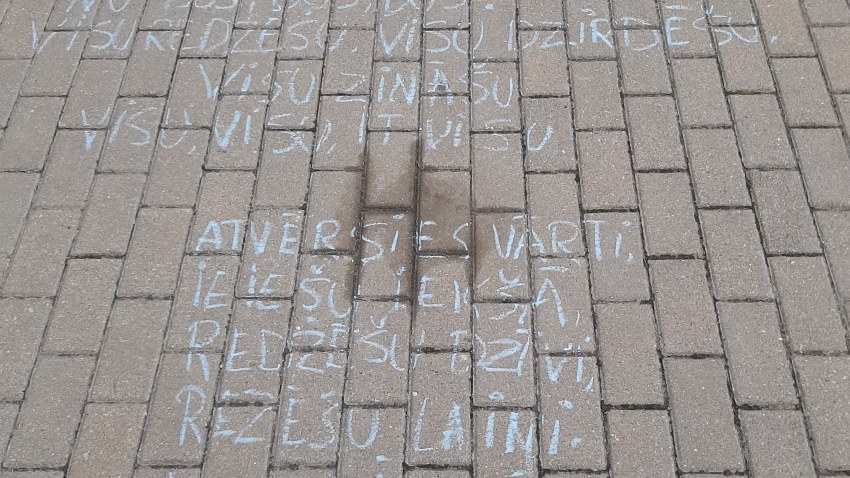 VISU REDZĒŠU, VISU DZIRDĒŠU.
VISU ZINĀŠU
VISU, VISU, IT VISU
ATVĒRSIES VĀRTI,
IEIEŠU IEKŠĀ,
REDZĒŠU DZĪVI,
RĒZĒŠU LAIŅI.